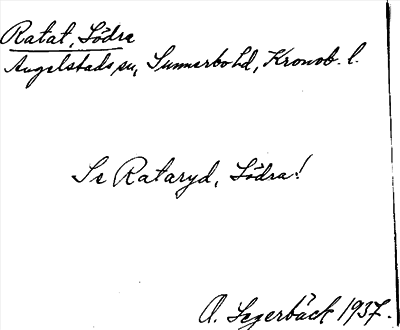 Ratat, Södra
Angelstads sn, Sunnerbo hd, Kronob. l.
Se Rataryd, Södra!
A. Segerbäck 1937.